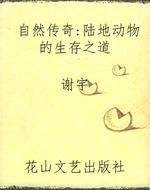 自然传奇:陆地动物
的生存之道
谢宇
花山文艺出版社